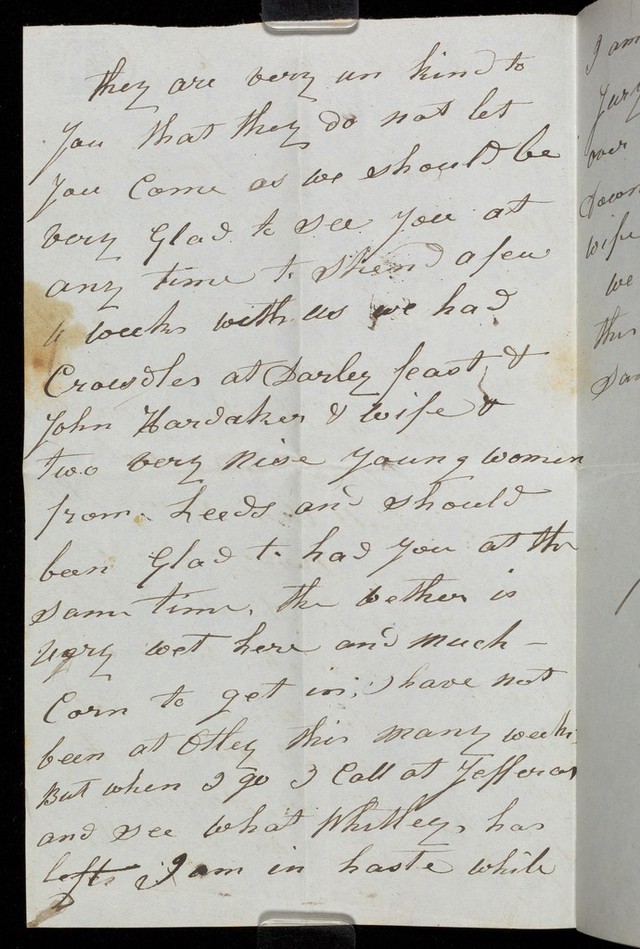 they are very un kind to
you that they do not let
you Come as we should be
very Glad to see you at
any time to spend a few
weeks with us we had
Crowdles at Darley feast &
John Hardaker & wife &
two very nise young women
from Leeds and should
been Glad to had you at the
same time, the wether is
very wet here and much
Corn to get in, I have not
been at Otley this many weeks
But when I go I Call at Jefferas
and see what Whitleys has
left I am in haste while
I am
Jury
over
Down
wife
we
this